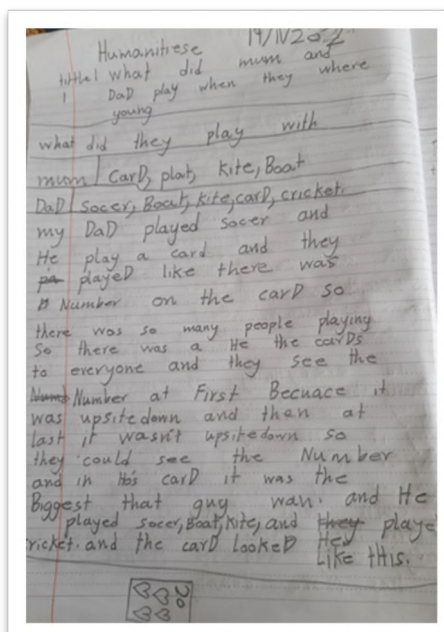 Humanitiese 19/11/202
tittle! what did mum and
! DaD play when they where
young
what did they play with
mum | CarD, plat, kite, Boat
DaD | Socer, Boat, kite, carD, cricket.
my DaD played socer and
He play a card and they
playeD like there was
Number on the carD so
there was so many people playing
So there was a He the carDs
to everyone and they see the
Number at First Becuace it
was upsitedown and then at
last it wasn't upsitedown so
they could see the Number
and in His carD it was the
Biggest that guy wan. and He
played socer, Boat, kite, and they playe
Hey
ricket. and the carD lookeD Like this.
20